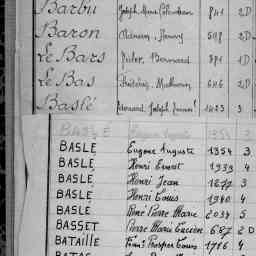 Barbu Joseph Marie 841 2D
Baron 508 2D
Le Bars Bernard 891 1D
Le Bas Frédéric, Mathurin 646 2D
Baslé Édouard Joseph 1423 3
BASLÉ
BASLE Eugène Auguste 1354 3
BASLE Henri Ernest 1939 4
BASLE Henri Jean 1677 3
BASLE Henri Louis 1980 4
BASLE René Pierre Marie 2034 5
BASSET Pierre Marie Lucien 687 2D
BATAILLE Prosper Louis 1786 4